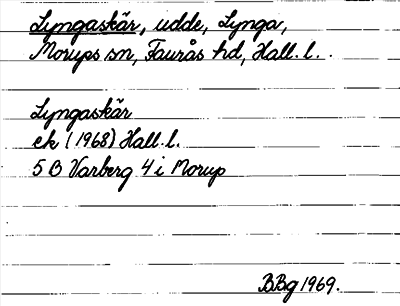 Lyngaskär, udde, Lynga,
Morups sn, Faurås hd, Hall. l. .
Lyngaskär
ek (1968) Hall. l.
5 B Varberg 4 i Morup
BBg 1969.